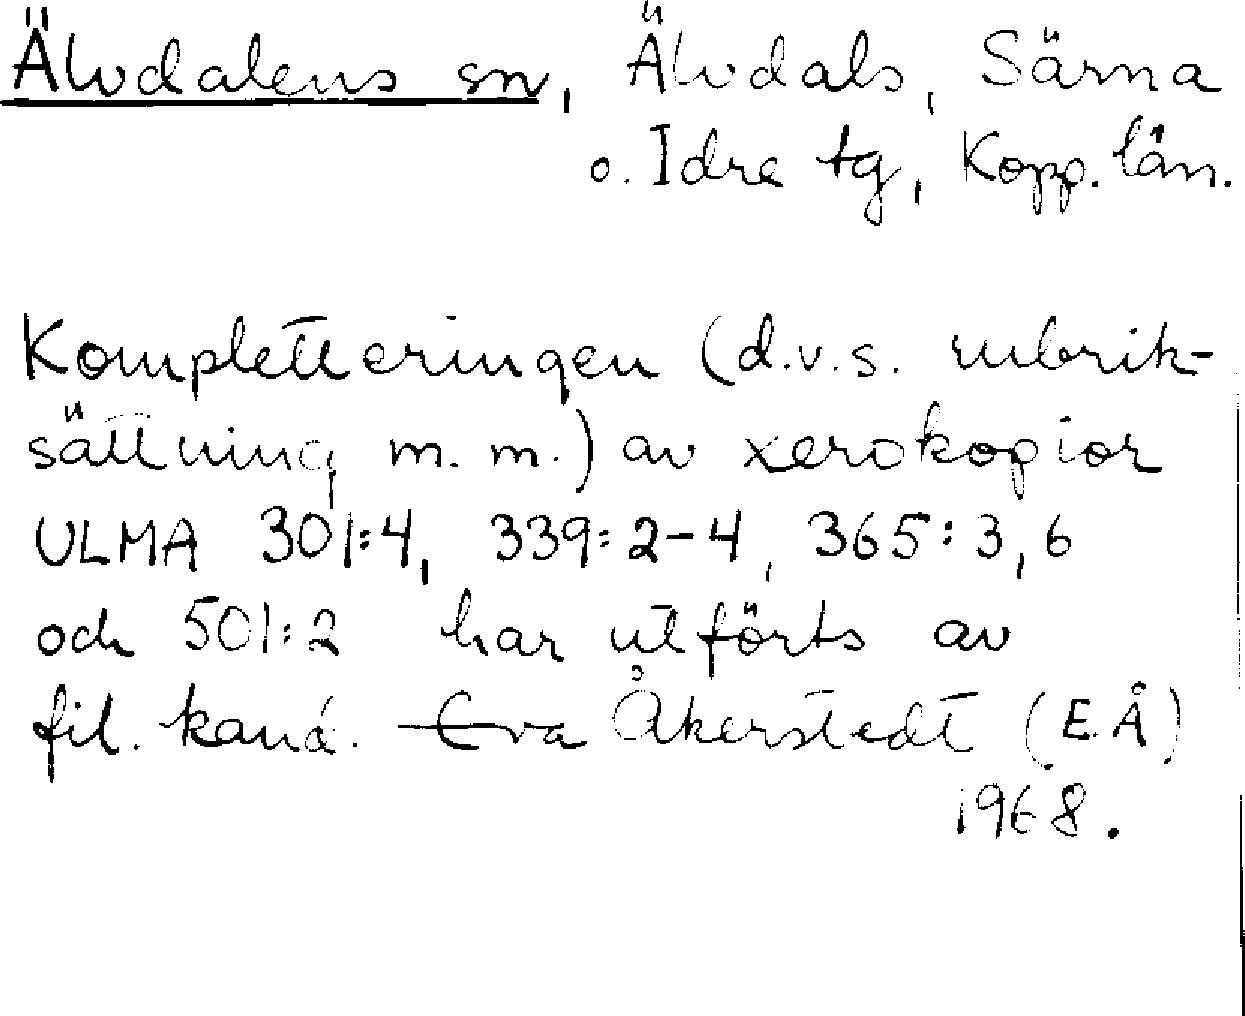 Älvdalens sn, Älvdals, Särna
o. Idre tg, Kopp. län.
Kompletteringen (d.v.s. rubrik-
sättning m. m.) av xerokopior
ULMA 301:4, 339:2-4, 365:3,6
och 501:2 har utförts av
fil. kand. Eva Åkerstedt (E.Å)
1968.